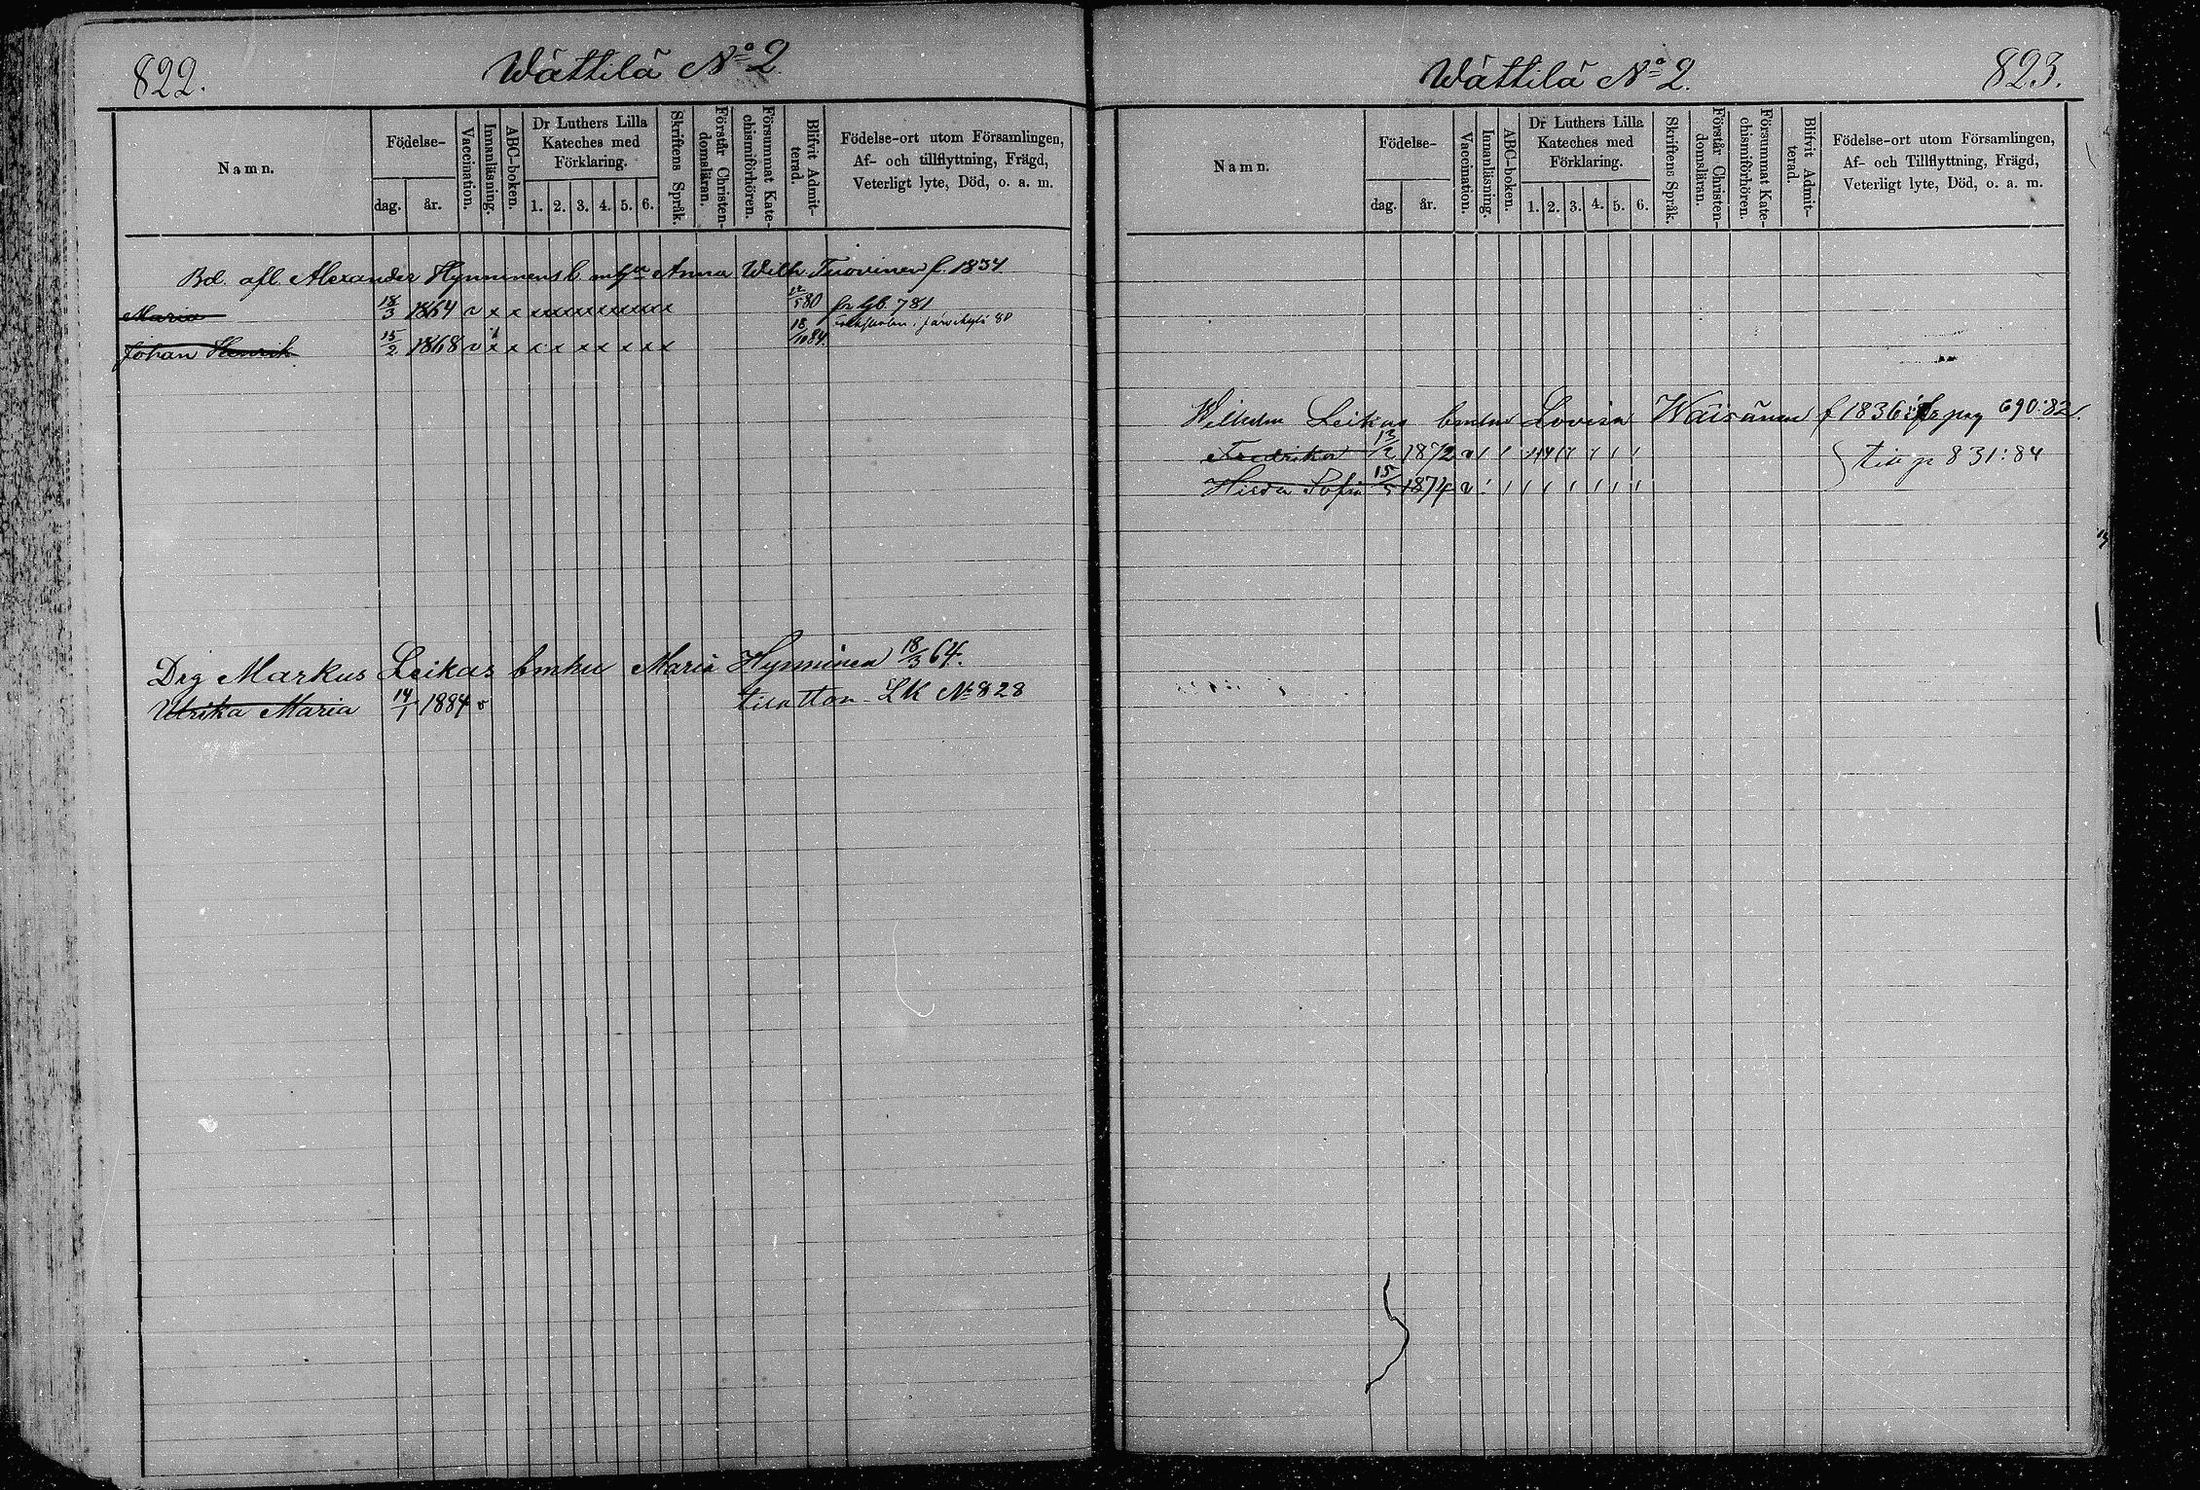 822.
Wättilä No 2.
Namn.
Födelse-
dag.
år.
Vaccination.
Innanläsning.
ABC-boken.
Dr Luthers Lilla
Kateches med
Förklaring.
1. 2. 3. 4. 5. 6.
Skriftens Språk.
Förstår Christen-
domsläran.
Försummat Kate-
chismiförhören.
Blifvit Admit-
terad.
Födelse-ort utom Församlingen,
Af- och tillflyttning, Frägd,
Veterligt lyte, Död, o. a. m.
Bd. afl. Alexander Hynninens b. Anna Wilh. Tuovinen f. 1834
Maria 18/3 1864 v x x xxxxxxxxxxx 12/5 80 fr. Gb. 781
80
Johan Henrik 15/2 1868 v x x x x x x x x x 18/10 84.
Drg Markus Leikas Maria Hynninen 18/3 64.
Ulrika Maria 14/1 1884 v LK No 828
Wättilä No 2.
823.
Namn.
Födelse-
dag.
år.
Vaccination.
Innanläsning.
ABC-boken.
Dr Luthers Lilla
Kateches med
Förklaring.
1. 2. 3. 4. 5. 6.
Skriftens Språk.
Förstår Christen-
domsläran.
Försummat Kate-
chismiförhören.
Blifvit Admit-
terad.
Födelse-ort utom Församlingen,
Af- och Tillflyttning, Frägd,
Veterligt lyte, Död, o. a. m.
Wilhelm Leikas Lovisa Wäisänen f 1836 fr pag 690:82.
Fredrika 13/2 1872 v
till p 831:84
Hilda Sofia 15/5 1874 v